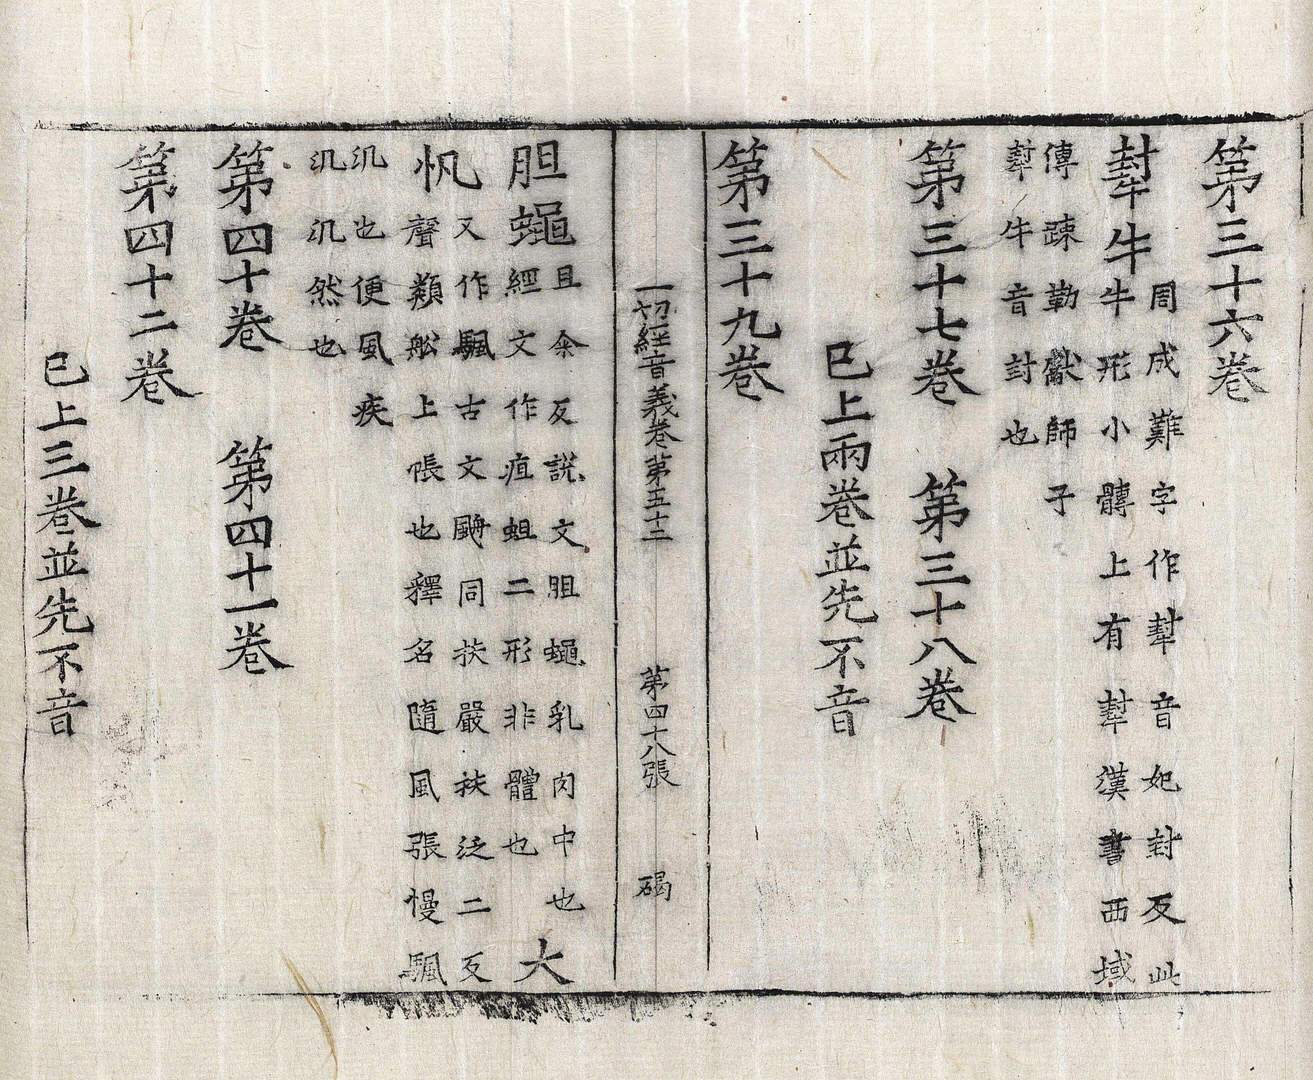 第三十六卷
犎牛周成難字作犎音妃封反此
牛形小髆上有犎漢書西域
傳疎勒獻師子
犎牛音封也
第三十七卷　第三十八卷
已上兩卷並先不音
第三十九卷
一切經音義卷第五十二　第四十八張　碣
胆蠅且余反說文胆蠅乳肉中也
經文作疽蛆二形非體也　大
帆又作颿古文䑺同扶嚴扶泛二反
聲類舩上帳也釋名隨風張慢颿
汎也便風疾
汎汎然也
第四十卷　第四十一卷
第四十二卷
已上三卷並先不音